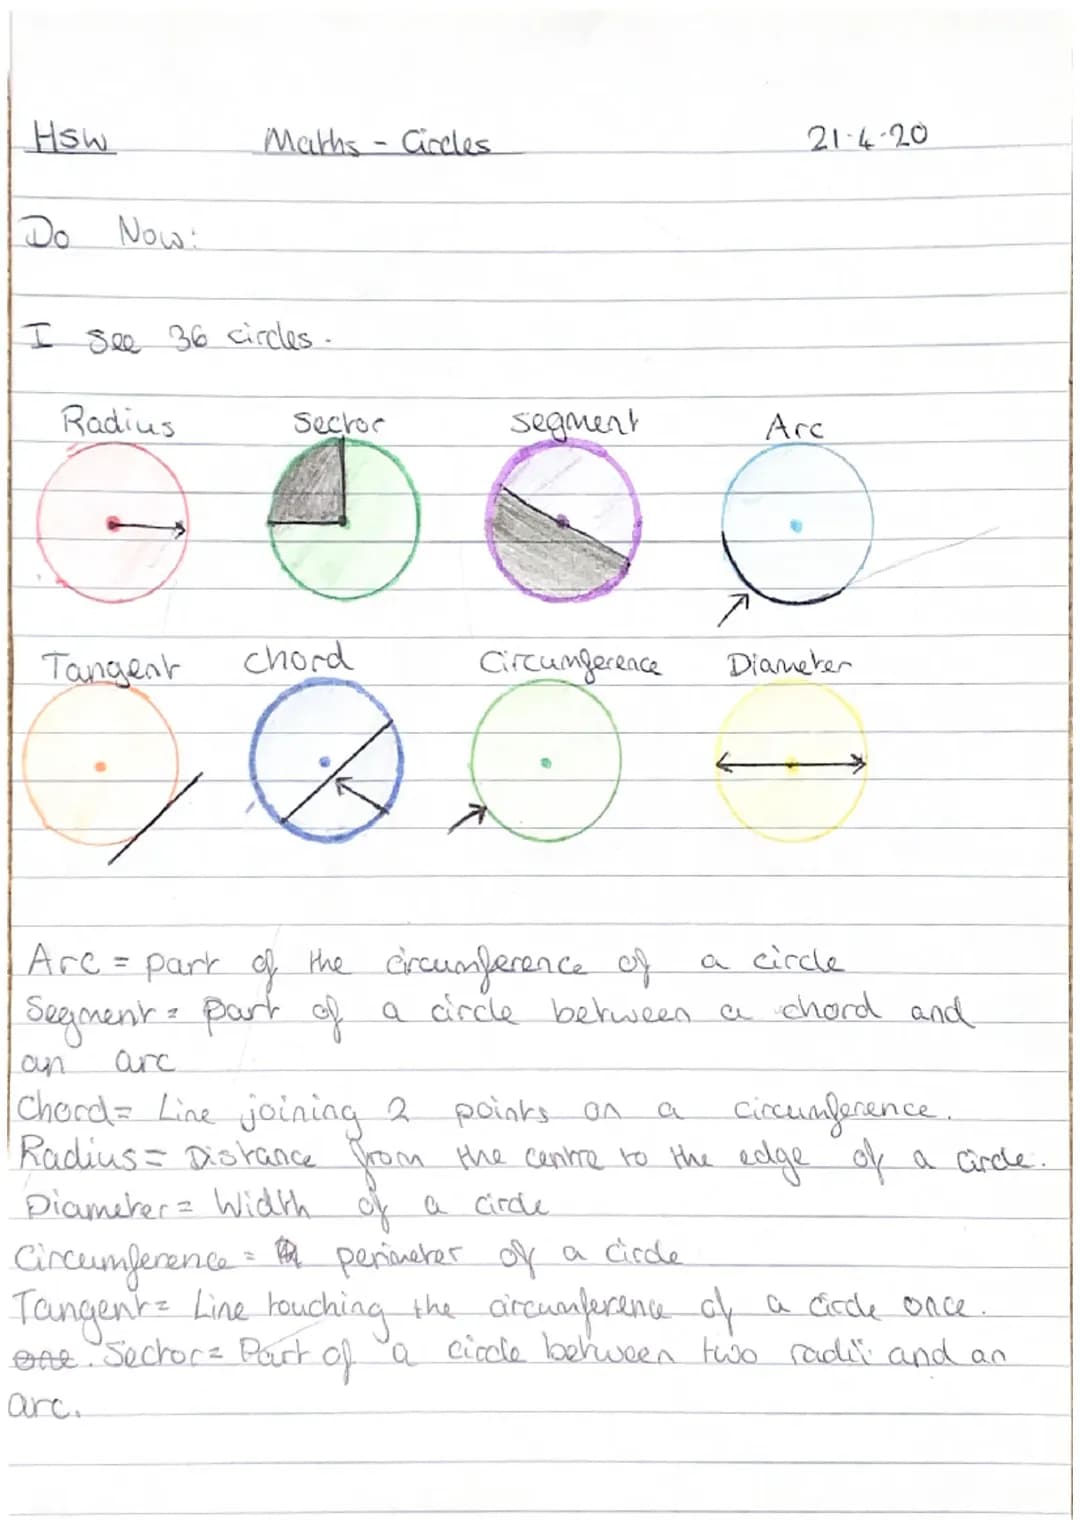 Hsw Maths - Circles 21.4.20
Do Now:
I see 36 circles.
Radius Sector Segment Arc
Tangent Chord Circumference Diameter
Arc = part of the circumference of a circle
Segment = part of a circle between a chord and
an arc
Chord = Line joining 2 points on a circumference.
Radius = Distance from the centre to the edge of a circle.
Diameter = Width of a circle
Circumference = perimeter of a circle
Tangent = Line touching the circumference of a circle once.
one. Sector = Part of a circle between two radii and an
arc.